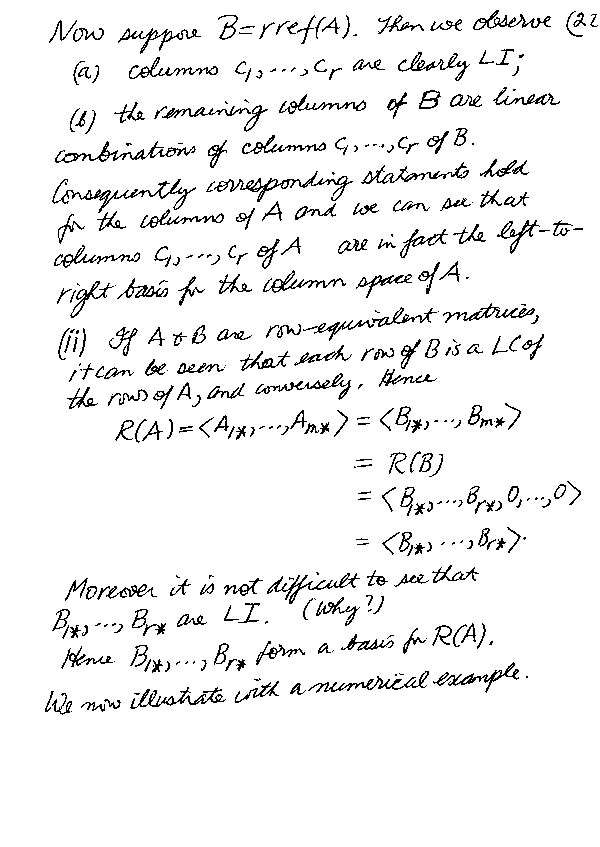 Now suppose B=rref(A). Then we observe (22
(a) columns c₁, ..., cᵣ are clearly LI;
(b) the remaining columns of B are linear
combinations of columns c₁, ..., cᵣ of B.
Consequently corresponding statements hold
for the columns of A and we can see that
columns c₁, ..., cᵣ of A are in fact the left-to-
right basis for the column space of A.
(ii) If A & B are row-equivalent matrices,
it can be seen that each row of B is a LC of
the rows of A, and conversely. Hence
R(A) = <A₁*, ..., Aₘ*> = <B₁*, ..., Bₘ*>
= R(B)
= <B₁*, ..., Bᵣ*, 0, ..., 0>
= <B₁*, ..., Bᵣ*>.
Moreover it is not difficult to see that
B₁*, ..., Bᵣ* are LI. (Why?)
Hence B₁*, ..., Bᵣ* form a basis for R(A).
We now illustrate with a numerical example.